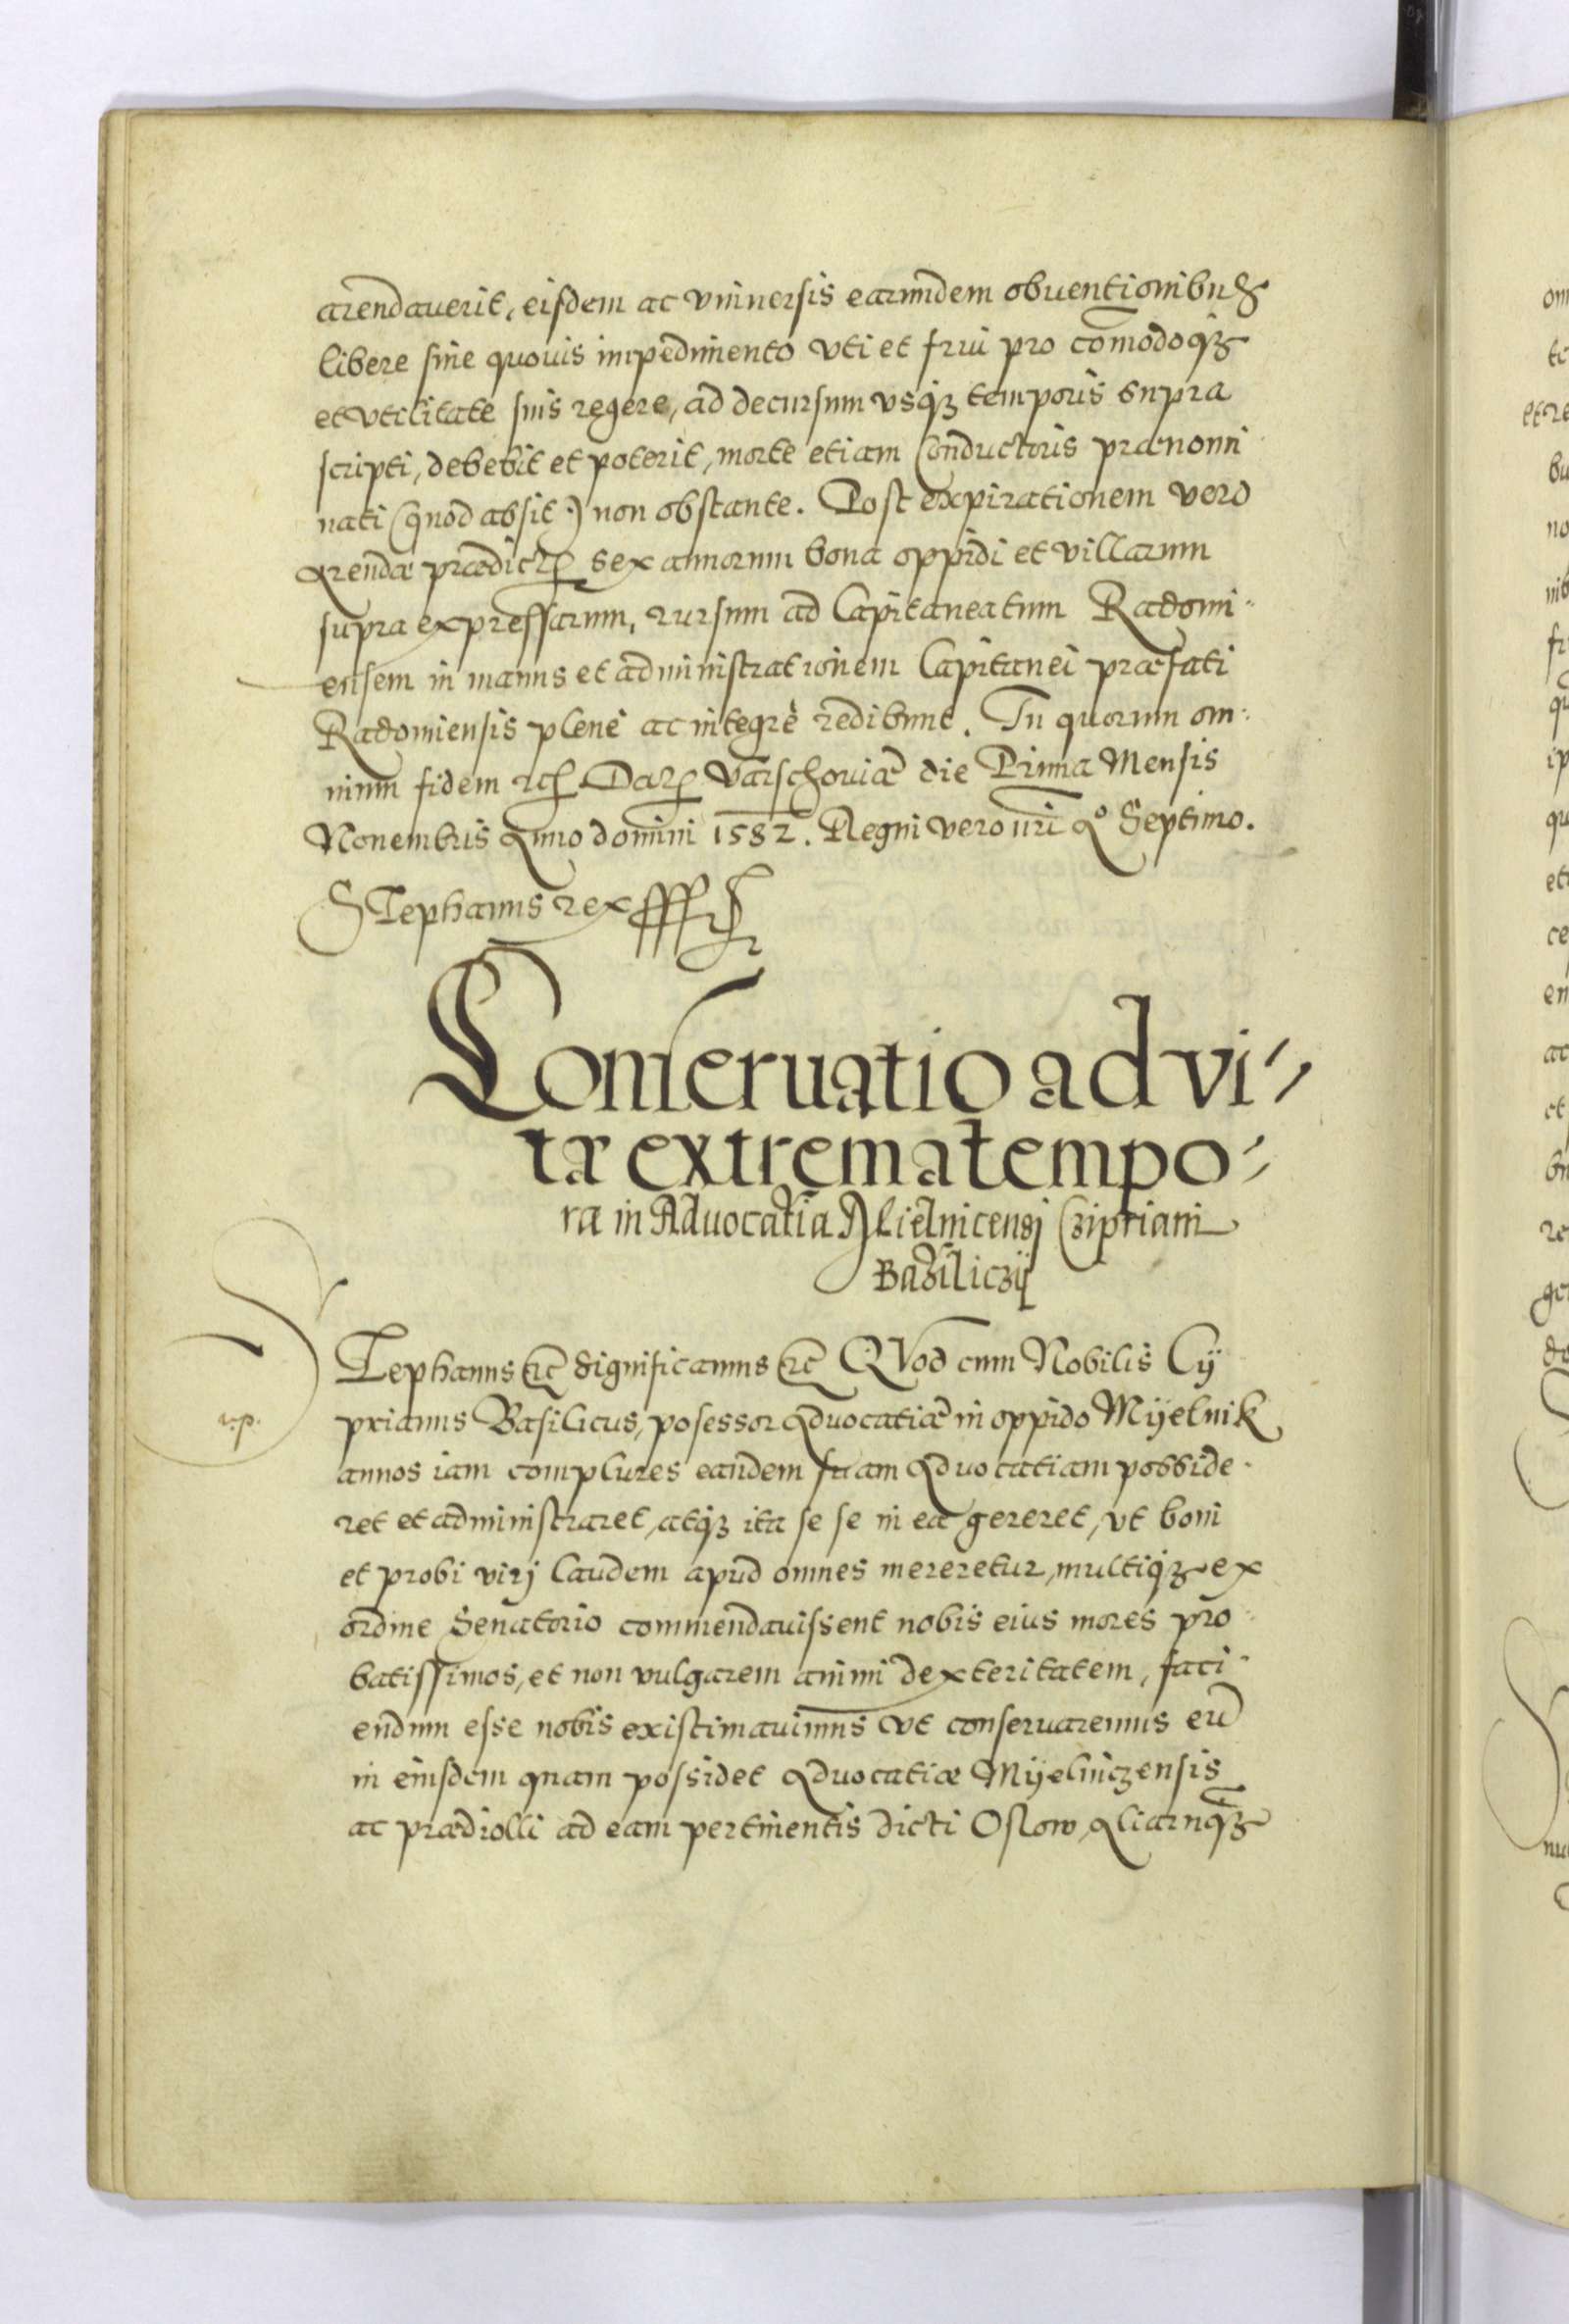 arendauerit, eisdem ac vniuersis earundem obuentionibus
libere sine quouis impedimento vti et frui pro comodoq3
et vtilitate suis regere, ad decursum vsq3 temporis supra
scripti, debebit et poterit, morte etiam Conductoris prænomi
nati (quod absit) non obstante. Post expirationem vero
Arendæ prædict sex annorum bona oppidi et villarum
supra expressarum, rursum ad Capitaneatum Radomi-
ensem in manus et administrationem Capitanei præfati
Radomiensis plenè ac integrè redibunt. In quorum om-
nium fidem etc Dat Varschouiæ die Prima Mensis
Nouembris Anno domini 1582. Regni vero nri Ao Septimo.
Stephanus rex
Conseruatio ad vi-
tæ extrema tempo-
ra in Aduocatia Mielnicensj Cziprianj
Baziliczij
Stephanus etc Significamus etc QVod cum Nobilis Cÿ
prianus Basilicus, posessor Aduocatiæ in oppido Mÿelnik
annos iam complures eandem suam Aduocatiam posside-
ret et administraret, atq3 ita se se in ea gereret, vt boni
et probi virj laudem apud omnes mereretur, multiq3 ex
ordine Senatorio commendauissent nobis eius mores pro-
batissimos, et non vulgarem animi dexteritatem, faci-
endum esse nobis existimauimus vt conseruaremus eū
in eiusdem quam possidet Aduocatiæ Mÿelniczensis
ac prædiolli ad eam pertinentis dicti Oslow, Aliarūq3